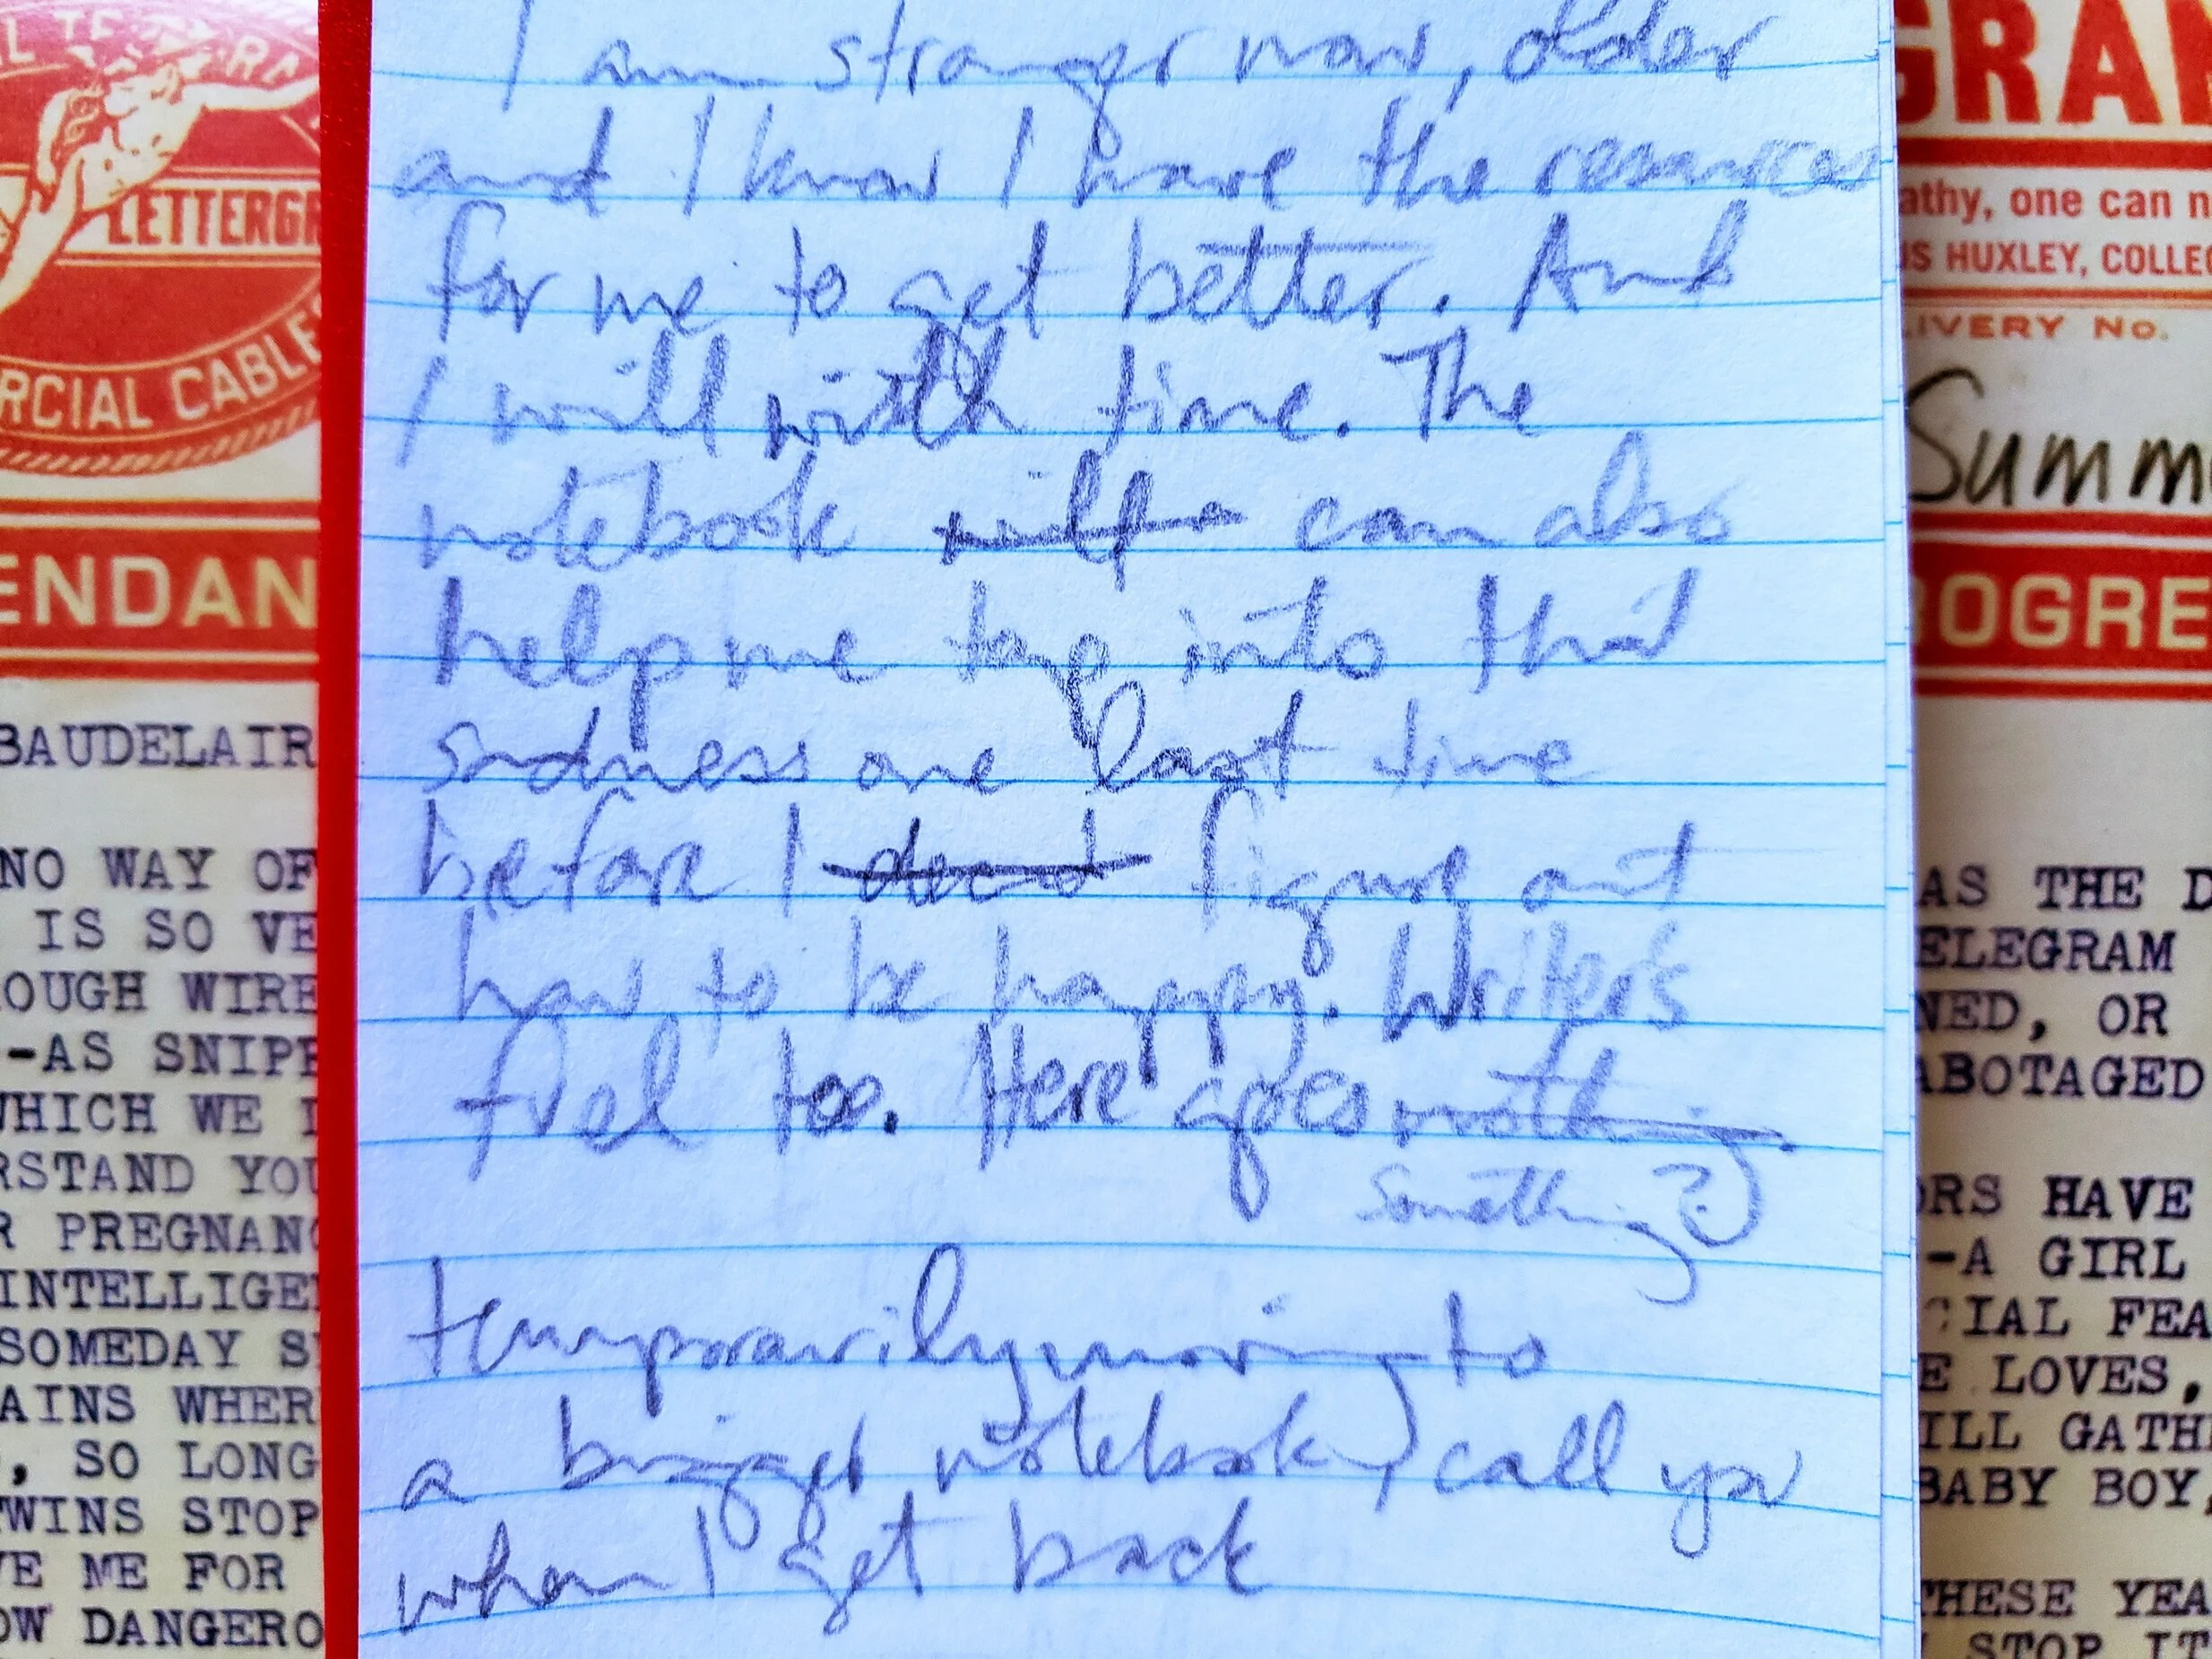 L TE RA
LETTERGR
RCIAL CABLES
ENDAN
BAUDELAIR
NO WAY OF
IS SO VE
OUGH WIRE
-AS SNIPP
WHICH WE I
RSTAND YOU
R PREGNANC
INTELLIGE
SOMEDAY S
AINS WHER
, SO LONG
TWINS STOP
VE ME FOR
OW DANGERO
I am stronger now, older
and I know I have the resources
for me to get better. And
I will with time. The
notebook can also
help me tap into that
sadness one last time
before I figure out
how to be happy. Writer's
fuel too. Here goes nothing
Something?)
temporarily moving to
a bigger notebook, call you
when I get back
GRAM
athy, one can n
US HUXLEY, COLLEC
LIVERY No.
Summ
OGRE
AS THE D
ELEGRAM
NED, OR
ABOTAGED
ORS HAVE
-A GIRL
CIAL FEA
E LOVES,
ILL GATH
BABY BOY,
THESE YEA
STOP IT